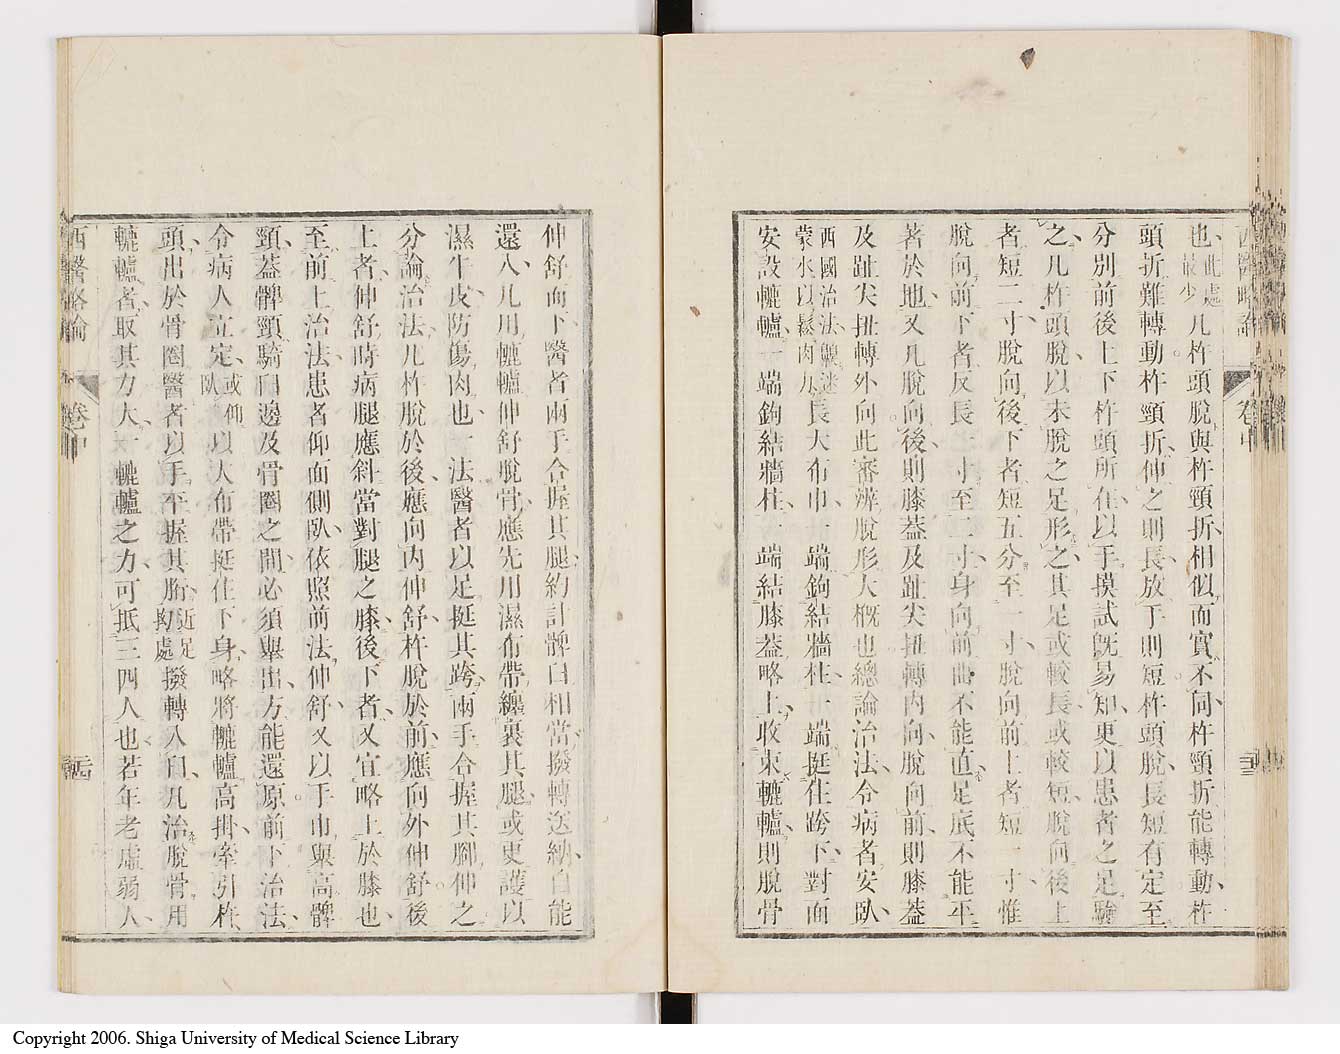 西醫略論 卷中 二十三
也此處最少凡杵頭脫與杵頸折相似而實不同杵頸折能轉動杵
頭折難轉動杵頸折伸之則長放手則短杵頭脫長短有定至
分別前後上下杵頭所在以手摸試旣易知更以患者之足驗
之凡杵頭脫以未脫之足形之其足或較長或較短脫向後上
者短二寸脫向後下者短五分至一寸脫向前上者短一寸惟
脫向前下者反長一寸至二寸身向前曲不能直足底不能平
著於地又凡脫向後則膝蓋及趾尖扭轉內向脫向前則膝蓋
及趾尖扭轉外向此審辨脫形大槪也總論治法令病者安臥
西國治法蒙水以鬆肉力長大布巾一端鉤結牆柱一端挺住跨下對面
安設轆轤一端鉤結牆柱一端結膝蓋略上收束轆轤則脫骨
伸舒而下醫者兩手合握其腿約計髀臼相當撥轉送納自能
還入凡用轆轤伸舒脫骨應先用濕布帶纏裹其腿或更護以
濕牛皮防傷肉也一法醫者以足挺其跨兩手合握其腳伸之
分論治法凡杵脫於後應向內伸舒杵脫於前應向外伸舒後
上者伸舒時病腿應斜當對腿之膝後下者又宜略上於膝也
至前上治法患者仰面側臥依照前法伸舒又以手巾舉高髀
頸蓋髀頸騎臼邊及骨圈之間必須舉出方能還原前下治法
令病人立定或仰臥以大布帶挺住下身略將轆轤高掛牽引杵
頭出於骨圈醫者以手平握其胻近足拗處撥轉入臼凡治脫骨用
轆轤者取其力大一轆轤之力可抵三四人也若年老虛弱人
西醫略論 卷中 二十四
Copyright 2006. Shiga University of Medical Science Library